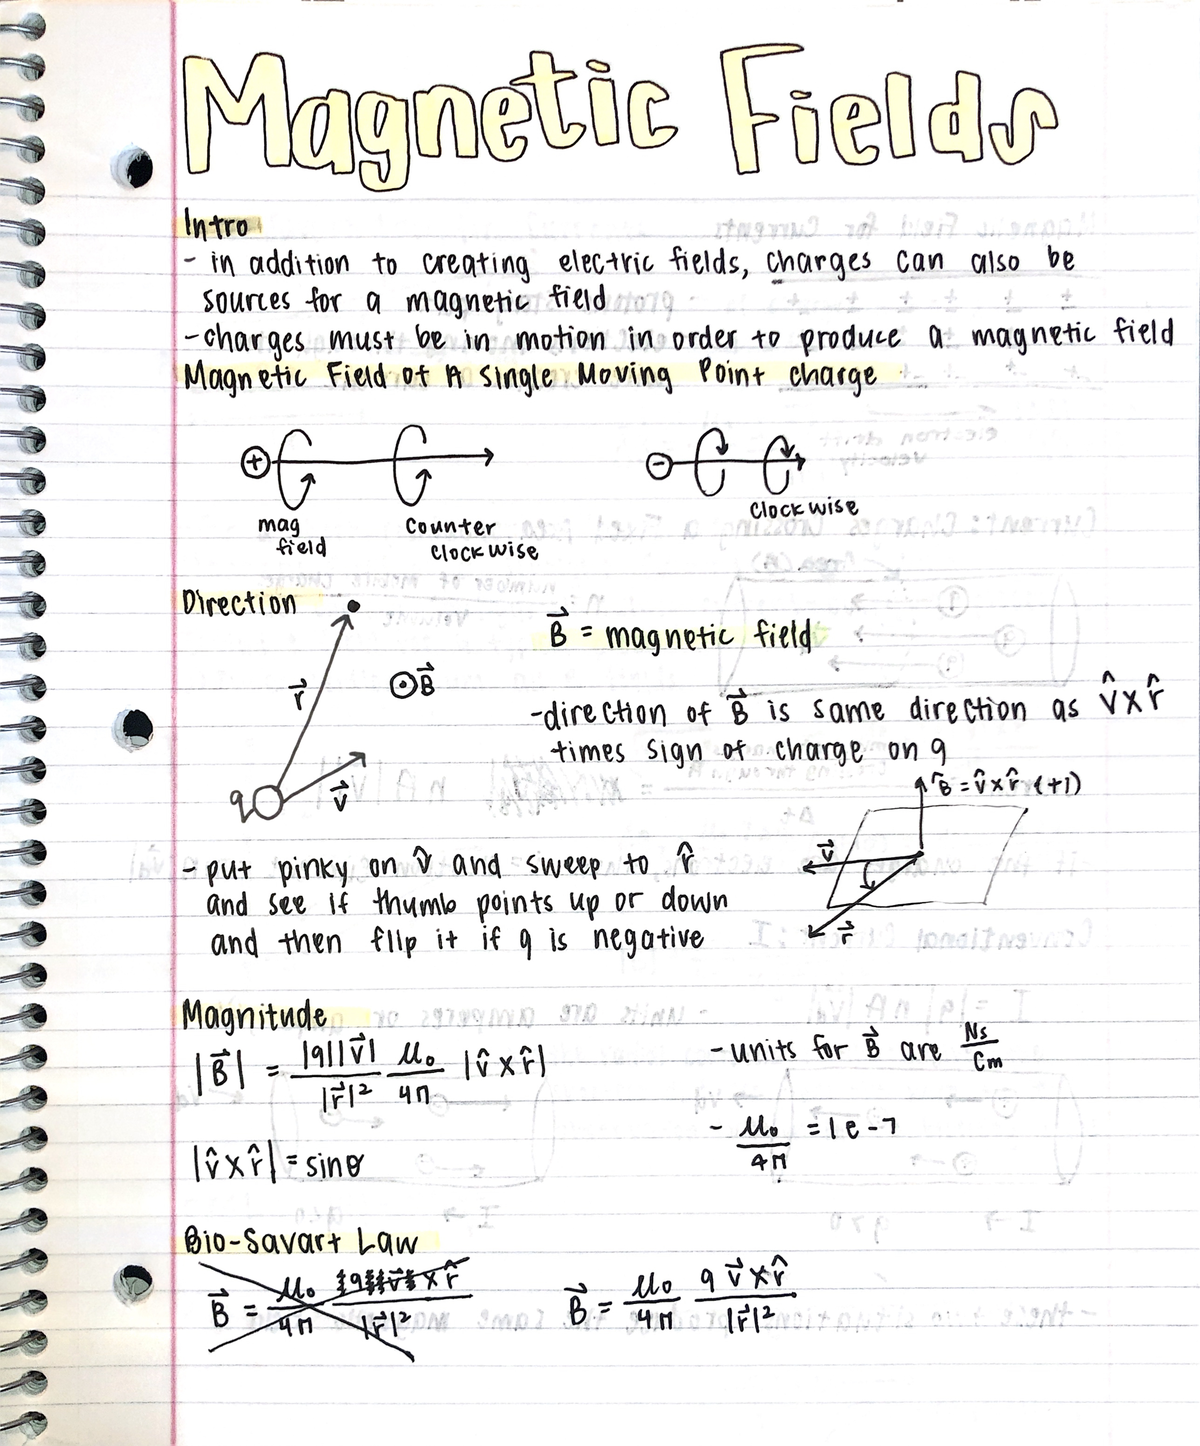 Magnetic Fields
Intro
- in addition to creating electric fields, charges can also be
sources for a magnetic field
- charges must be in motion in order to produce a magnetic field
Magnetic Field of A Single Moving Point charge
+
-
mag
field
Counter
clockwise
Clockwise
Direction
r⃗
⊙B⃗
q
v⃗
B⃗ = magnetic field
- direction of B⃗ is same direction as v̂ x r̂
times sign of charge on q
B̂ = v̂ x r̂ (+1)
v⃗
r⃗
- put pinky on v̂ and sweep to r̂
and see if thumb points up or down
and then flip it if q is negative
Magnitude
|B⃗| = |q||v⃗| / |r⃗|² μ₀ / 4π |v̂ x r̂|
- units for B⃗ are Ns / Cm
- μ₀ / 4π = 1e-7
|v̂ x r̂| = sinθ
Bio-Savart Law
B⃗ = μ₀ / 4π q v⃗ x r̂ / |r⃗|²
B⃗ = μ₀ / 4π q v⃗ x r̂ / |r⃗|²